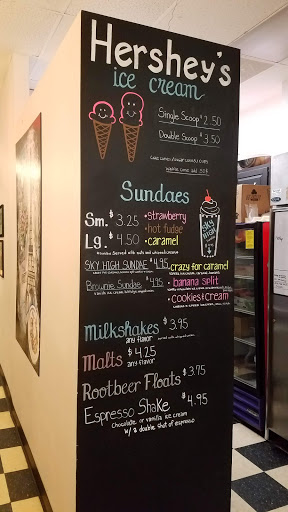 Hershey's
ice cream
Single Scoop $2.50
Double Scoop $3.50
cake cones/sugar cones/cups
waffle cone add 50¢
Sundaes
Sm. $3.25 •strawberry
Lg. $4.50 •hot fudge
•caramel
Sundaes served with nuts and whipped cream
SKY HIGH
SKY HIGH SUNDAE $4.95 •crazy for caramel
•banana split
Brownie Sundae $4.95
•cookies&cream
Milkshakes $3.95
any flavor
Malts $4.25
any flavor
Rootbeer Floats $3.75
Espresso Shake $4.95
chocolate or vanilla ice cream
w/ a double shot of espresso